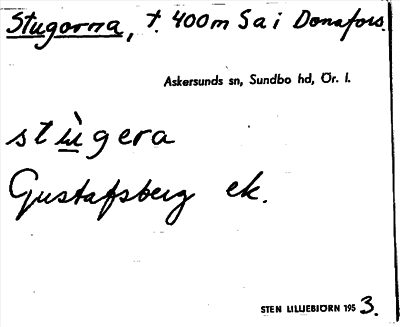 Stugorna, t. 400m Sa i Donafors.
Askersunds sn, Sundbo hd, Ör. l.
stùgera
Gustafsberg ek.
STEN LILLIEBJÖRN 1953.